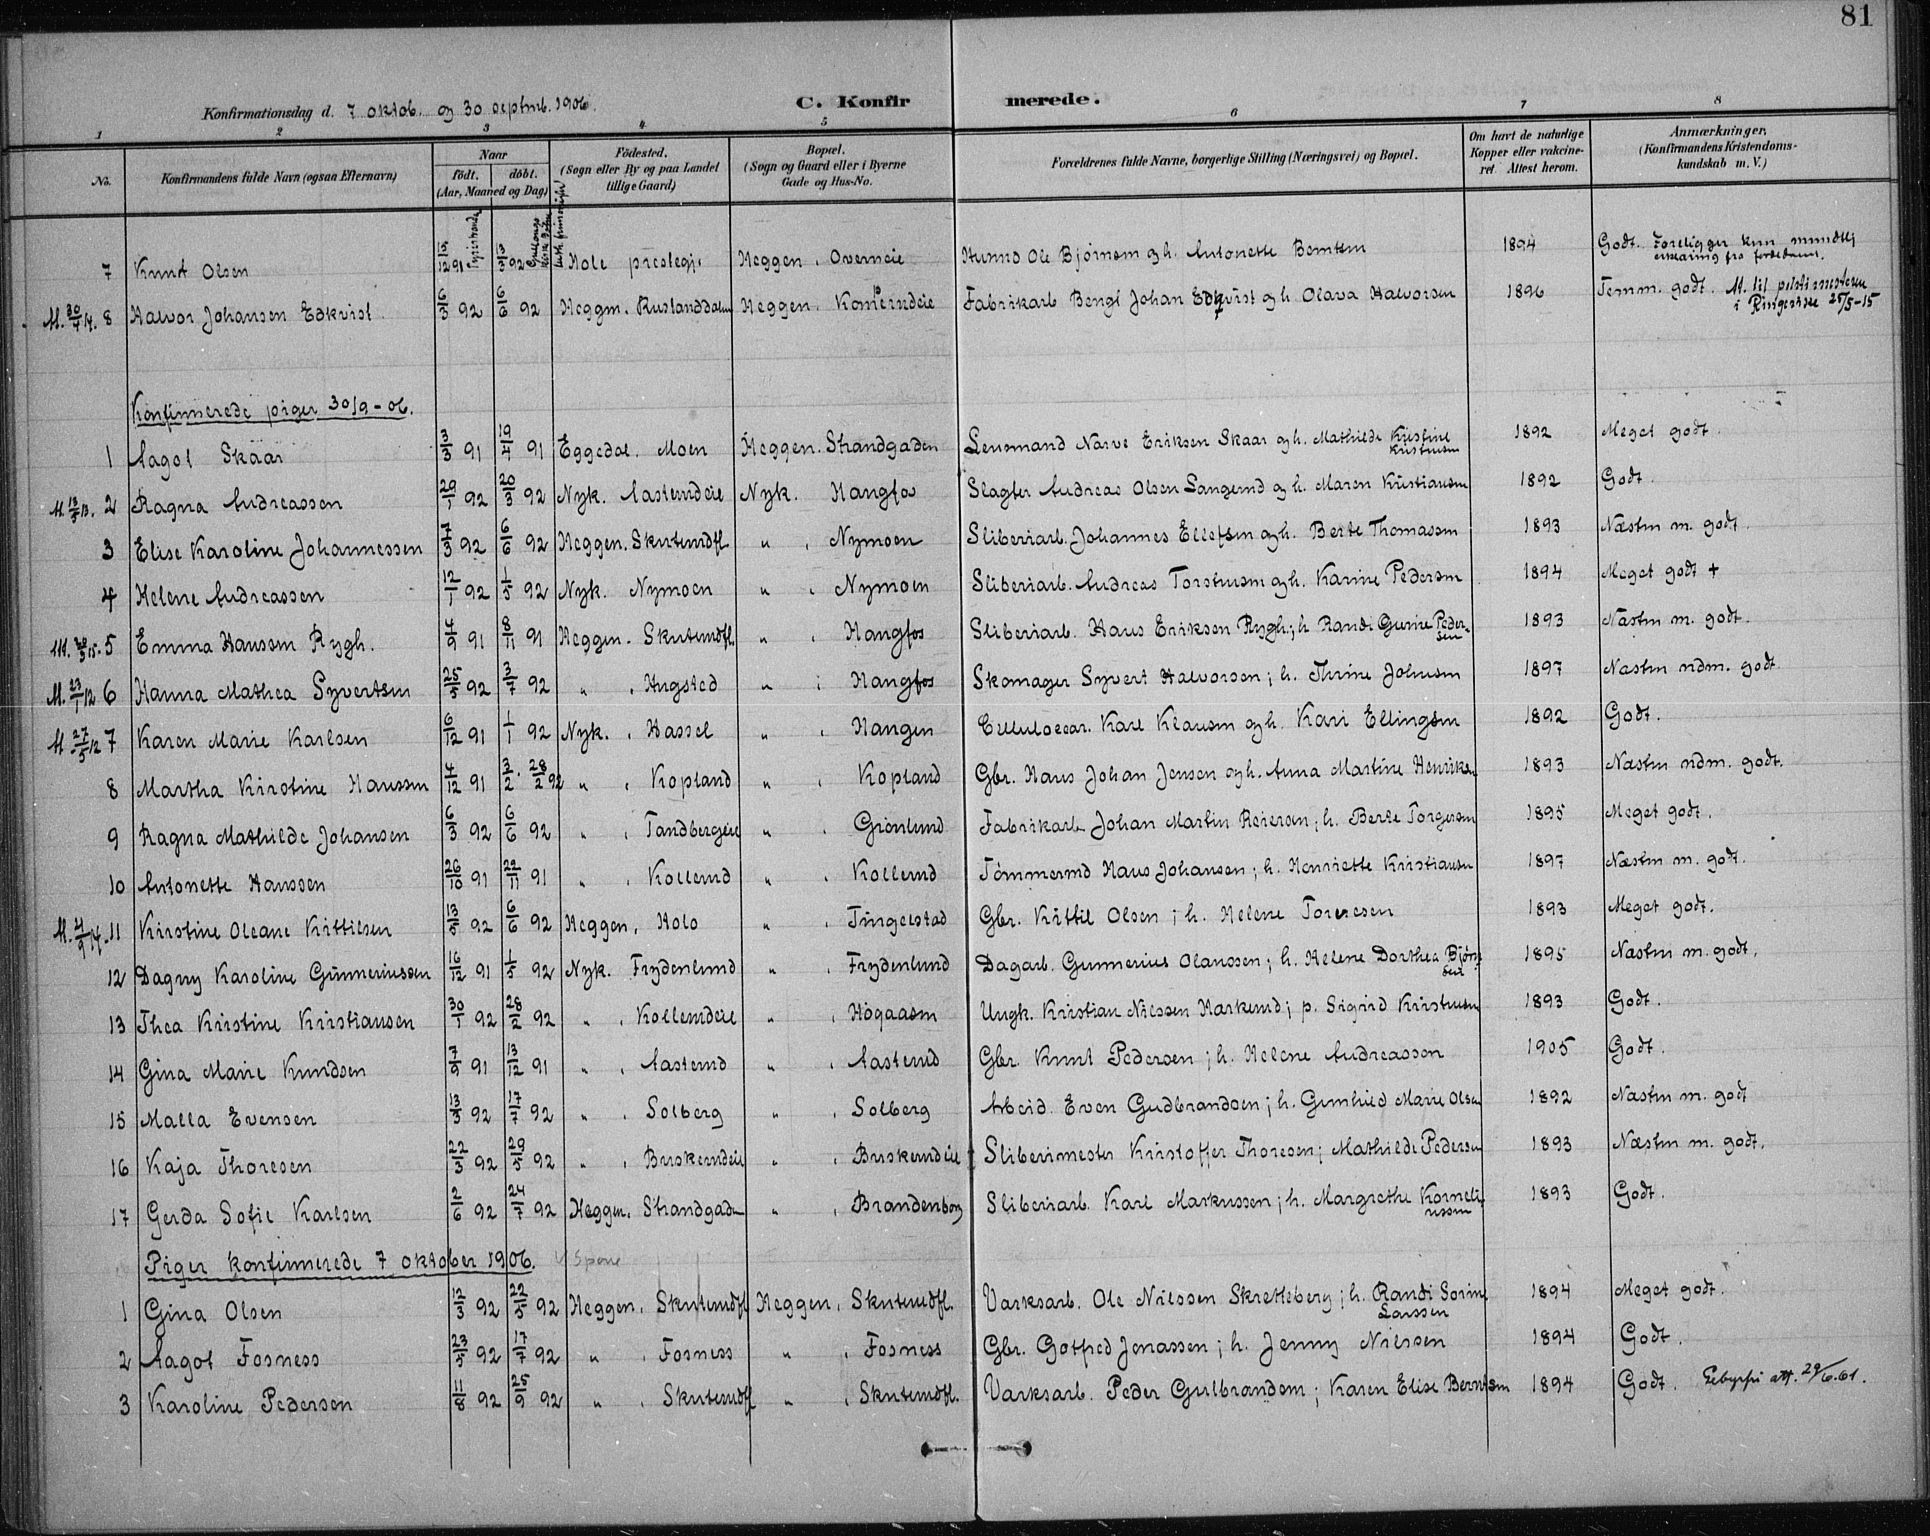 81
Konfirmationsdag d. 7 oktob. og 30 septmb. 1906. C. Konfirmerede.
1 2 3 4 5 6 7 8
No. Konfirmandens fulde Navn (ogsaa Efternavn) Naar født. døbt. (Aar, Maaned og Dag) Fødested. (Sogn eller By og paa Landet tillige Gaard) Bopæl. (Sogn og Gaard eller i Byerne Gade og Hus-No. Forældrenes fulde Navne, borgerlige Stilling (Næringsvei) og Bopæl. Om havt de naturlige Kopper eller vakcineret. Attest herom. Anmærkninger. (Konfirmandens Kristendomskundskab m. V.)
7 Knut Olsen 91 92 Hole præstegj. Heggen. Overneie Ole Bjørnsen og h. Antonette Berntsen 1894 Godt. Foreligger kun mundtlig erklæring fra
M. 30/4 14. 8 Halvor Johansen Edkvist 6/3 92 6/6 92 Heggen. Ruslanddalen Heggen. Fabrikarb. Bengt Johan Edkvist og h. Olava Halvorsen 1896 Temm. godt. At. til politimesteren i Ringerike 25/5-15
Konfirmerede piger 30/9-06.
1 Aagot Skaar 3/3 91 19/4 91 Eggedal. Moen Heggen. Strandgaden Lensmand Narve Eriksen Skaar og h. Mathilde Kristine Kristensen 1892 Meget godt.
M. 13/5 13. 2 Ragna Andreassen 29/1 92 20/3 92 Nyk. Aasterudeie Nyk. Hangfos Slagter Andreas Olsen Sangerud og h. Maren Kristiansen 1892 Godt.
3 Elise Karoline Johannessen 7/3 92 6/6 92 Heggen. Skuterudfl. " . Nymoen Sliberiarb. Johannes Ellefsen og h. Berte Thomassen 1893 Næsten m. godt.
4 Helene Andreassen 12/1 92 1/5 92 Nyk. Nymoen " . Nymoen Sliberiarb. Andreas Torstensen og h. Karine Pedersen 1894 Meget godt +
M. 15. 5 Emma Hansen Rygh. 4/9 91 8/11 91 Heggen. Skuterudfl. " . Hangfos Sliberiarb. Hans Eriksen Rygh; h. Randi Gurine Pedersen 1893 Næsten m. godt.
M. 23/1 12 6 Hanna Mathea Syvertsen 25/5 92 3/7 92 " . Hugsted " . Hangfos Skomager Syvert Halvorsen; h. Thrine Johnsen 1897 Næsten udm. godt
M. 27/5 12 7 Karen Marie Karlsen 6/12 91 1/1 92 Nyk. . Hassel " . Haugen Cellulosear. Karl Klausen og h. Kari Ellingsen 1892 Godt.
8 Martha Kirstine Hanssen 4/12 91 3/2. 28/2 92 " . Kopland " . Kopland Gbr. Hans Johan Jensen og h. Anna Martine Henriksen 1893 Næsten udm. godt.
9 Ragna Mathilde Johansen 6/3 92 6/6 92 " . Tandbergeie " . Grønlund Fabrikarb. Johan Martin Reiersen; h. Berte Torgersen 1895 Meget godt.
10 Antonette Hanssen 26/10 91 22/11 91 " . Kollerud " . Kollerud Tømmermd Hans Johansen; h. Henriette Kristiansen 1897 Næsten m. godt.
M. 4/9 14. 11 Kirstine Oleane Kittilsen 13/5 92 6/6 92 Heggen. Holo " . Tingelstad Gbr. Kittil Olsen; h. Helene Toresen 1893 Meget godt.
12 Dagny Karoline Gunneriussen 16/12 91 1/5 92 Nyk. Frydenlund " . Frydenlund Dagarb. Gunnerius Olaussen; h. Helene Dorthea Bjørnsen 1895 Næsten m. godt.
13 Thea Kirstine Kristiansen 30/1 92 28/2 92 " . Kollerudeie " . Høgaasen Ungk. Kristian Nilssen Harkerud; p. Sigrid Kristensen 1893 Godt.
14 Gina Marie Knudsen 7/9 91 13/12 91 " . Aasterud " . Aasterud Gbr. Knut Pedersen; h. Helene Andreassen 1905 Godt.
15 Malla Evensen 13/5 92 17/7 92 " . Solberg " . Solberg Arbeid. Even Gudbrandsen; h. Gunhild Marie Olsen 1892 Næsten m. godt
16 Kaja Thoresen 22/3 92 29/5 92 " . Buskerudeie " . Buskerudeie Sliberimester Kristoffer Thoresen; Mathilde Pedersen 1893 Næsten m. godt.
17 Gerda Sofie Karlsen 2/6 92 24/7 92 Heggen. Strandgaden " . Brandenborg Sliberiarb. Karl Markussen; h. Margrethe Korneliussen 1893 Godt.
Piger konfirmerede 7 oktober 1906.
1 Gina Olsen 12/3 92 22/5 92 Heggen. Skuterudfl. Heggen. Skuterudfl. Værksarb. Ole Nilssen Skretteberg; h. Randi Sorine Larssen 1894 Meget godt.
2 Aagot Fosness 23/5 92 17/7 92 " . Fosness " . Fosness Gbr. Gotfred Jonassen; h. Jenny Nilssen 1894 Godt.
3 Karoline Pedersen 11/8 92 25/9 92 " . Skuterudfl. " . Skuterudfl. Værksarb. Peder Gulbrandsen; Karen Elise Berntsen 1894 Godt. Gebyrfri att. 29/6.61.